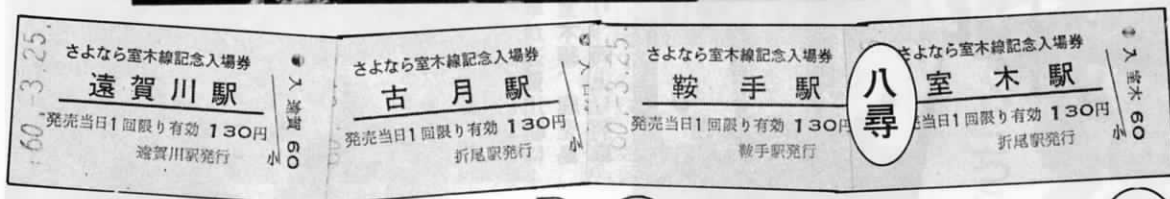 60.-3.25.
さよなら室木線記念入場券
遠賀川駅
発売当日1回限り有効 130円
遠賀川駅発行
入 遠賀 60
小
さよなら室木線記念入場券
古月駅
発売当日1回限り有効 130円
折尾駅発行
小
60.-3.25.
さよなら室木線記念入場券
鞍手駅
発売当日1回限り有効 130円
鞍手駅発行
八尋
さよなら室木線記念入場券
室木駅
売当日1回限り有効 130円
折尾駅発行
入 室木 60
小